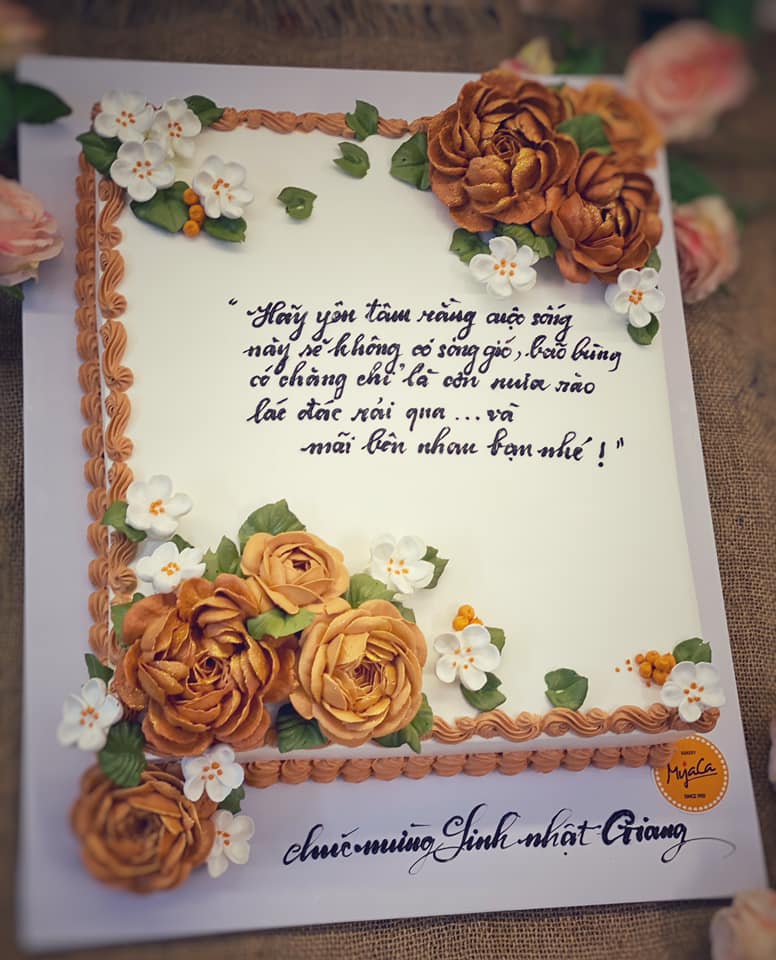 "Hãy yên tâm rằng cuộc sống
này sẽ không có sóng gió, bão bùng
có chăng chỉ là cơn mưa rào
lác đác rải qua ... và
mãi bên nhau bạn nhé !"
BAKERY
MyaLa
SINCE 1950
chúc mừng Sinh nhật Giang